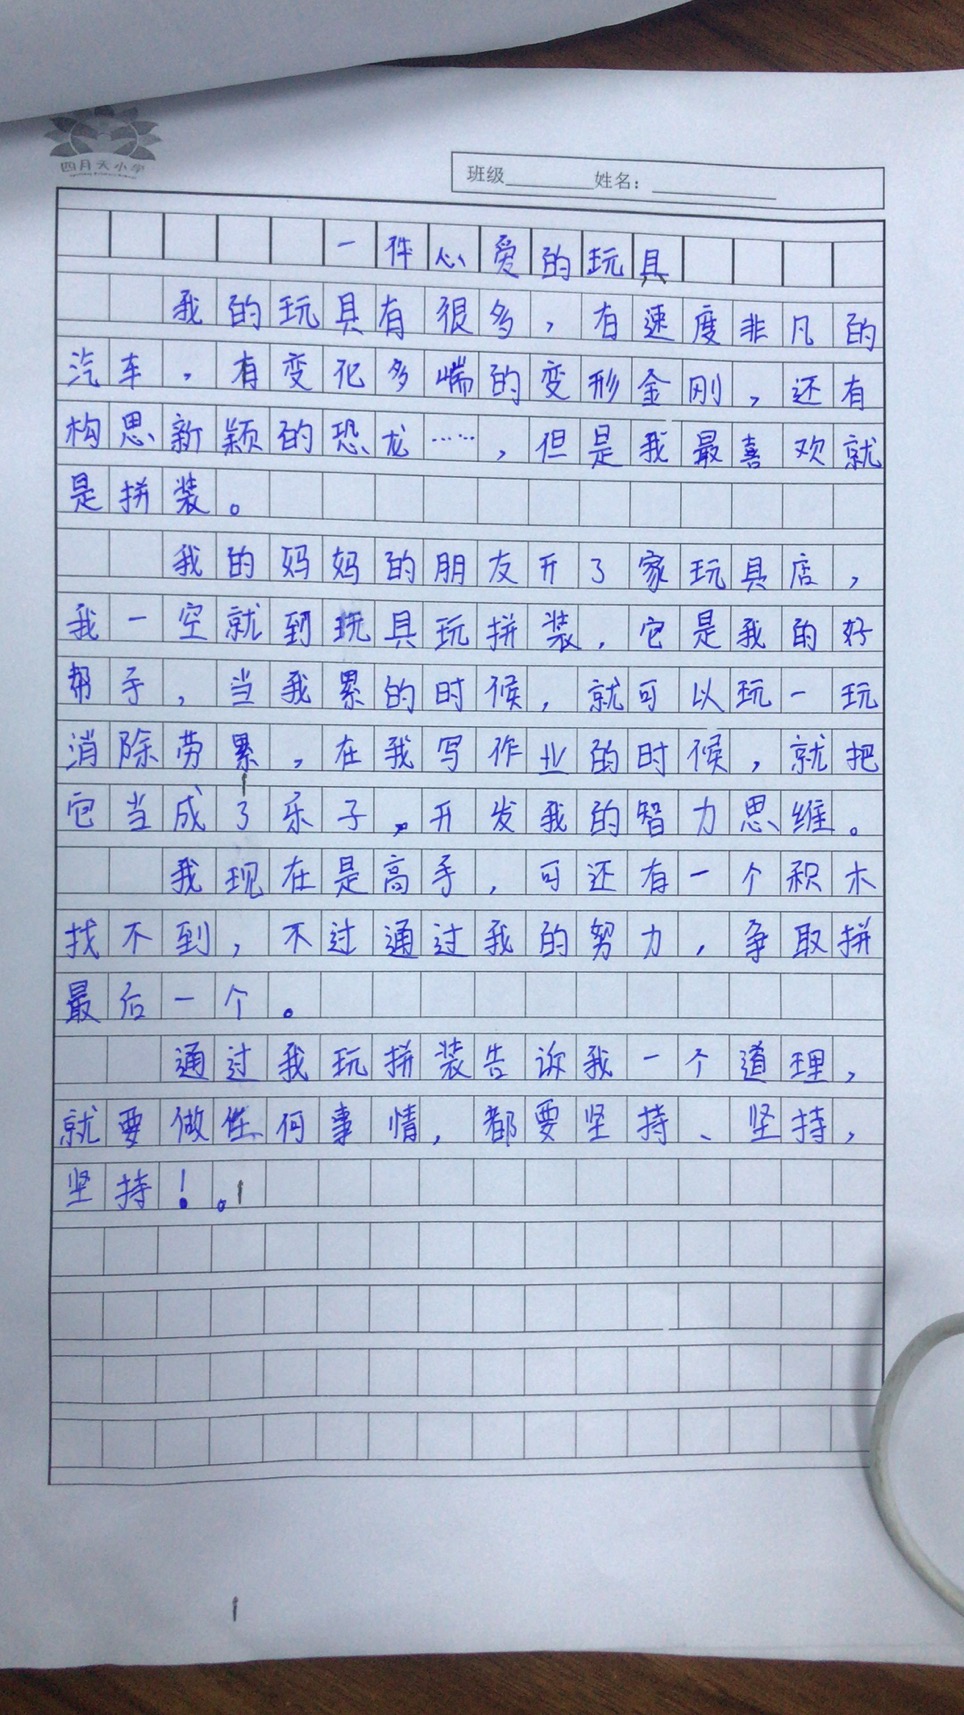 四月天小学
班级________姓名：____________
一件心爱的玩具
我的玩具有很多，有速度非凡的
汽车，有变化多端的变形金刚，还有
构思新颖的恐龙……，但是我最喜欢就
是拼装。
我的妈妈的朋友开了家玩具店，
我一空就到玩具玩拼装，它是我的好
帮手，当我累的时候，就可以玩一玩
消除劳累，在我写作业的时候，就把
它当成了乐子，开发我的智力思维。
我现在是高手，可还有一个积木
找不到，不过通过我的努力，争取拼
最后一个。
通过我玩拼装告诉我一个道理，
就要做任何事情，都要坚持、坚持，
坚持！。